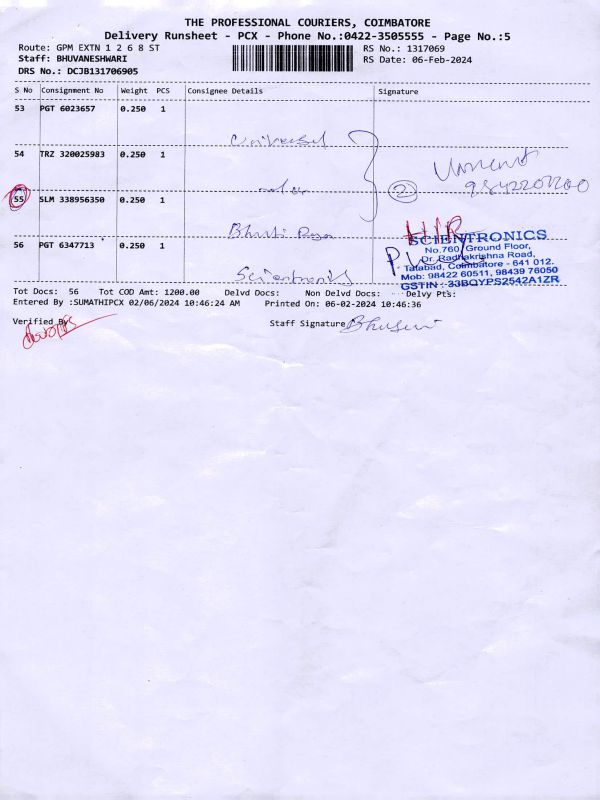 THE PROFESSIONAL COURIERS, COIMBATORE
Delivery Runsheet - PCX - Phone No.:0422-3505555 - Page No.:5
Route: GPM EXTN 1 2 6 8 ST
RS No.: 1317069
Staff: BHUVANESHWARI
RS Date: 06-Feb-2024
DRS No.: DCJB131706905
S No Consignment No Weight PCS Consignee Details Signature
53 PGT 6023657 0.250 1
Universal
54 TRZ 320025983 0.250 1
2
55 SLM 338956350 0.250 1
Bharti
H/R
56 PGT 6347713 0.250 1
Scientronics
SCIENTRONICS
No.760, Ground Floor,
Dr. Radhakrishna Road,
Tatabad, Coimbatore - 641 012.
Mob: 98422 60511, 98439 76050
GSTIN : 33BQYPS2542A1ZR
Tot Docs: 56 Tot COD Amt: 1200.00 Delvd Docs: Non Delvd Docs: Delvy Pts:
Entered By :SUMATHIPCX 02/06/2024 10:46:24 AM Printed On: 06-02-2024 10:46:36
Verified By
Staff Signature